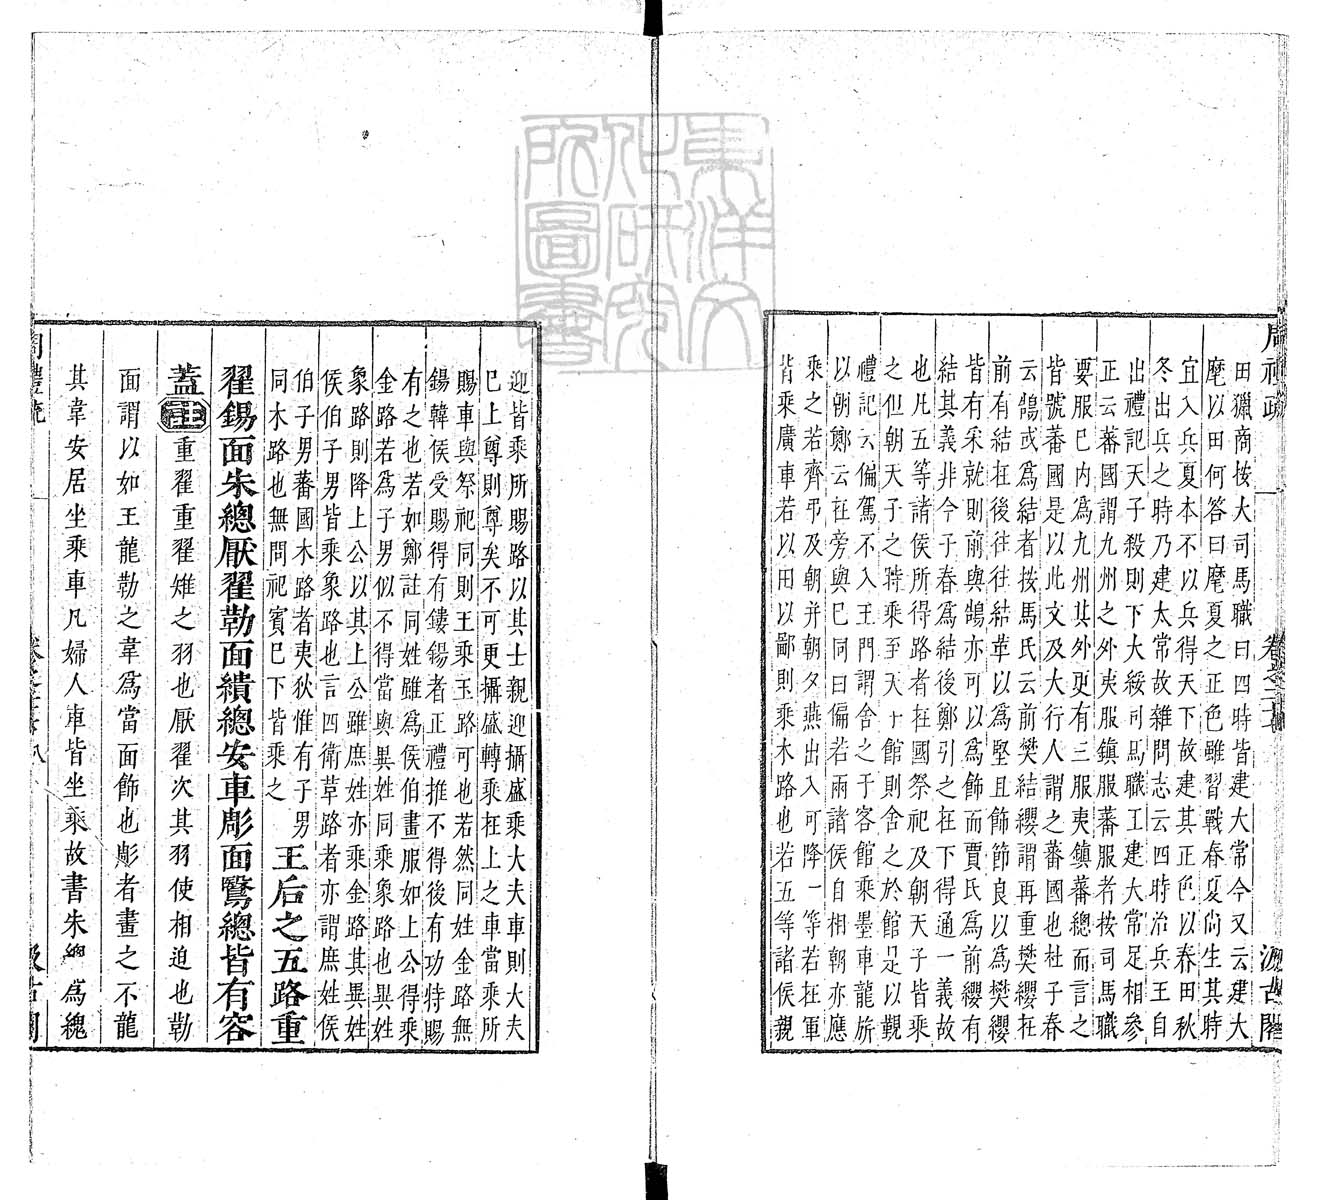 周禮疏 卷之二十七 汲古閣
田獵商按大司馬職曰四時皆建大常今又云建大
麾以田何答曰麾夏之正色雖習戰春夏尚生其時
宜入兵夏本不以兵得天下故建其正色以春田秋
冬出兵之時乃建太常故雜問志云四時治兵王自
出禮記天子殺則下大綏司馬職工建大常足相參
正云蕃國謂九州之外夷服鎮服蕃服者按司馬職
要服已内爲九州其外更有三服夷鎮蕃總而言之
皆號蕃國是以此文及大行人謂之蕃國也杜子春
云鵠或爲結者按馬氏云前樊結纓謂再重樊纓在
前有結在後往往結革以爲堅且飾節良以爲樊纓
皆有采就則前與鵠亦可以爲飾而賈氏爲前纓有
結其義非今子春爲結後鄭引之在下得通一義故
也凡五等諸侯所得路者在國祭祀及朝天子皆乘
之但朝天子之時乘至天子館則舍之於館是以覲
禮記云偏駕不入王門謂舍之于客館乘墨車龍旂
以朝鄭云在旁與已同曰偏若兩諸侯自相朝亦應
乘之若齊弔及朝并朝夕燕出入可降一等若在軍
皆乘廣車若以田以鄙則乘木路也若五等諸侯親
迎皆乘所賜路以其士親迎攝盛乘大夫車則大夫
已上尊則尊矣不可更攝盛轉乘在上之車當乘所
賜車與祭祀同則王乘玉路可也若然同姓金路無
鍚韓侯受賜得有鏤鍚者正禮推不得後有功特賜
有之也若如鄭註同姓雖爲侯伯畫服如上公得乘
金路若爲子男似不得當與異姓同乘象路也異姓
象路則降上公以其上公雖庶姓亦乘金路其異姓
侯伯子男皆乘象路也言四衛革路者亦謂庶姓侯
伯子男蕃國木路者夷狄惟有子男
同木路也無問祀賓已下皆乘之 王后之五路重
翟鍚面朱總厭翟勒面繢總安車彫面鷖總皆有容
蓋 註 重翟重翟雉之羽也厭翟次其羽使相迫也勒
面謂以如王龍勒之韋爲當面飾也彫者畫之不龍
其韋安居坐乘車凡婦人車皆坐乘故書朱總爲繐
周禮疏 八 汲古閣
東洋文化研究所圖書